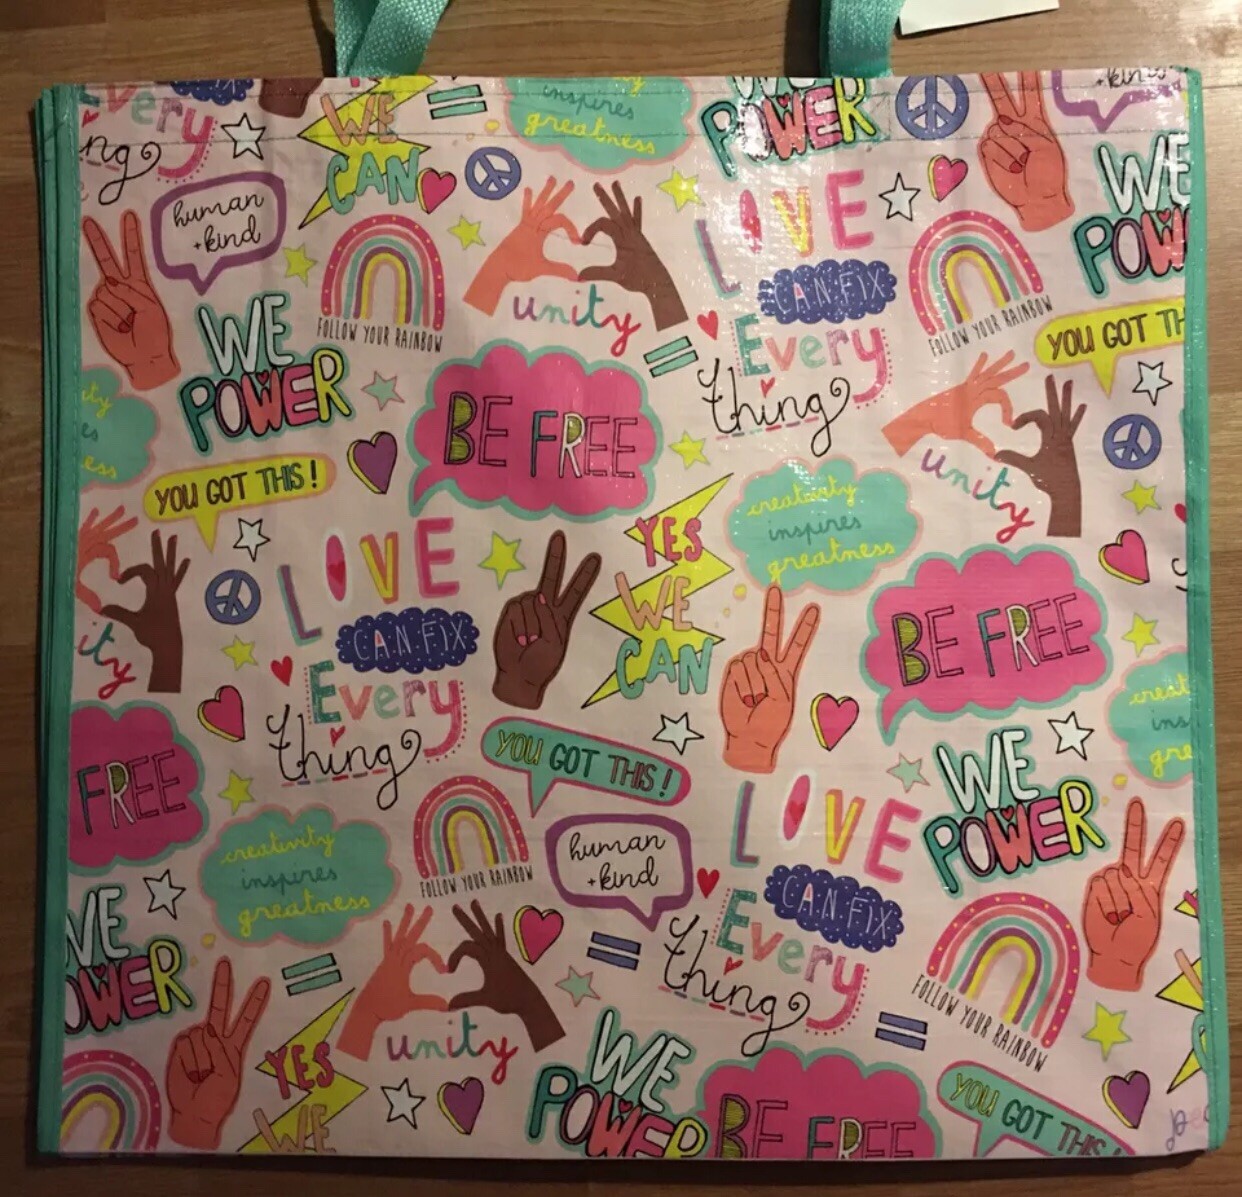 Every
ng
WE
CAN
inspires
greatness
POWER
+kind
human
+kind
WE
POWER
FOLLOW YOUR RAINBOW
unity
LOVE
CAN FIX
Every
thing
FOLLOW YOUR RAINBOW
WE
POW
YOU GOT TH
unity
BE FREE
YOU GOT THIS!
LOVE
CAN FIX
Every
thing
YES
WE
CAN
creativity
inspires
greatness
BE FREE
ity
FREE
YOU GOT THIS!
creativity
inspires
greatness
FOLLOW YOUR RAINBOW
human
+kind
LOVE
CAN FIX
Every
thing
WE
POWER
creat
ins
gre
FOLLOW YOUR RAINBOW
WE
OWER
unity
YES
WE
WE
POWER
BE FREE
YOU GOT THIS!